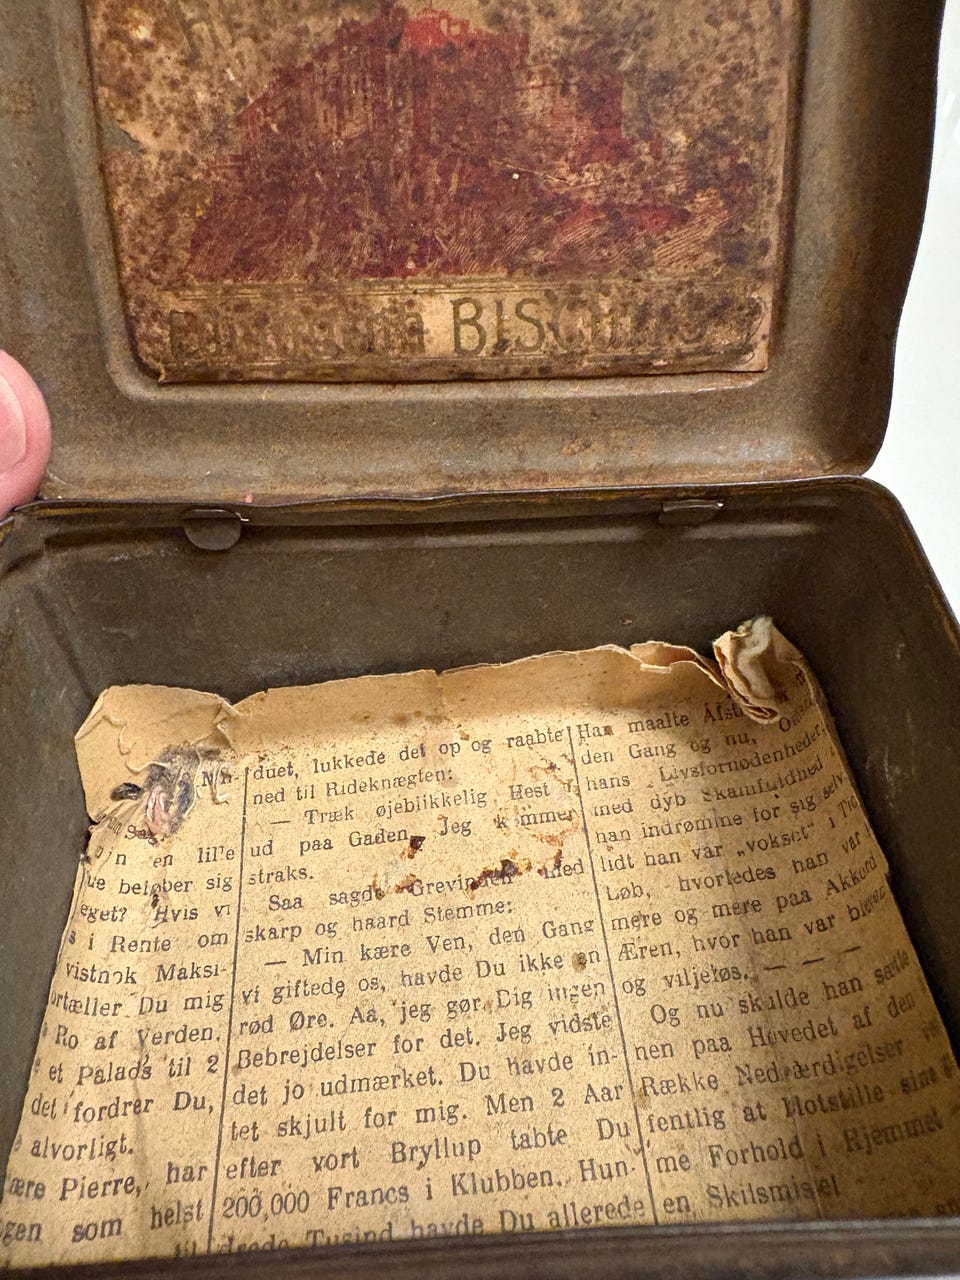 BISCUITS
en lil'e
beløber sig
eget? Hvis vi
i Rente om
vistnok Maksi-
ortæller Du mig
Ro af Verden.
et Palads til 2
det fordrer Du,
alvorligt.
ære Pierre, har
gen som helst
duet, lukkede det op og raabte
ned til Rideknægten:
— Træk øjeblikkelig Hest
ud paa Gaden. Jeg kommer
straks.
Saa sagde Grevinden med
skarp og haard Stemme:
— Min kære Ven, den Gang
vi giftede os, havde Du ikke en
rød Øre. Aa, jeg gør Dig ingen
Bebrejdelser for det. Jeg vidste
det jo udmærket. Du havde in-
tet skjult for mig. Men 2 Aar
efter vort Bryllup tabte Du
200,000 Francs i Klubben. Hun-
drede Tusind havde Du allerede
Han maalte
den Gang og nu,
hans Livsfornødenheder,
med dyb Skamfuldhed
han indrømme for sig selv,
lidt han var „vokset“ i
Løb, hvorledes han var
mere og mere paa Akkord
Æren, hvor han var blevet
og viljeløs. — — —
Og nu skulde han sætte
nen paa Hovedet af den
Række Nedværdigelser
fentlig at
me Forhold i Hjemmet
en Skilsmisse